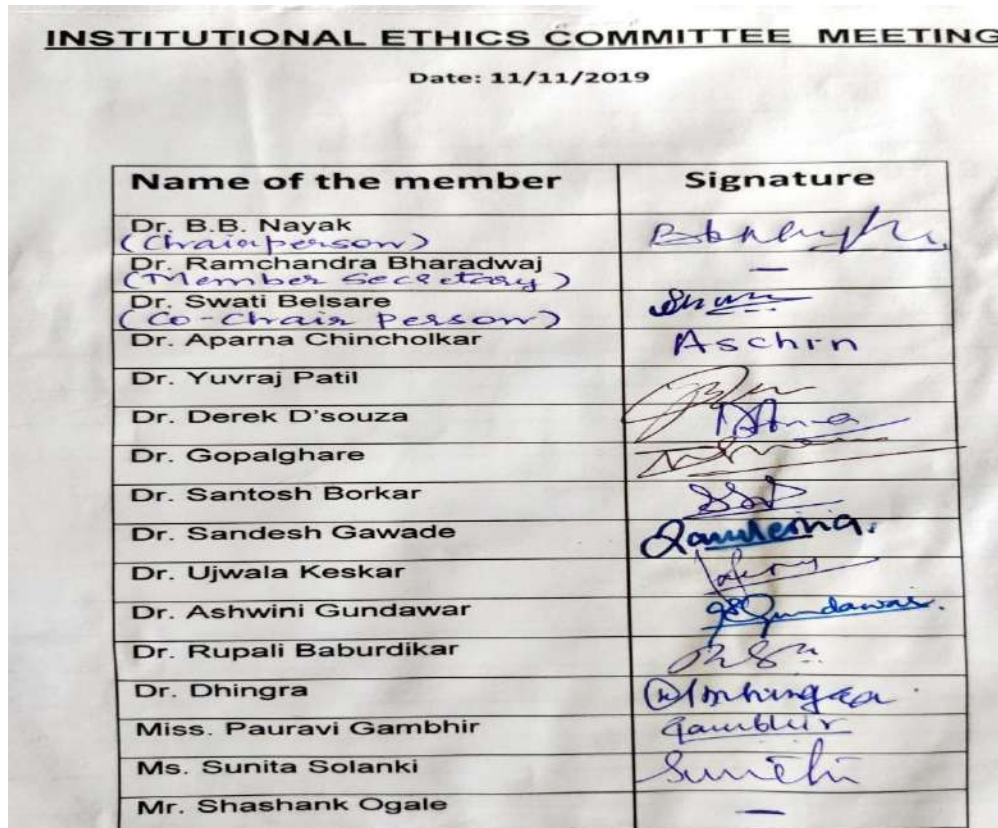 INSTITUTIONAL ETHICS COMMITTEE MEETING
Date: 11/11/2019
Name of the member Signature
Dr. B.B. Nayak
(Chairperson)
Dr. Ramchandra Bharadwaj —
(Member Secretary)
Dr. Swati Belsare
(Co-Chair Person)
Dr. Aparna Chincholkar Aschrn
Dr. Yuvraj Patil
Dr. Derek D'souza
Dr. Gopalghare
Dr. Santosh Borkar
Dr. Sandesh Gawade
Dr. Ujwala Keskar
Dr. Ashwini Gundawar Gundawar.
Dr. Rupali Baburdikar
Dr. Dhingra
Miss. Pauravi Gambhir Gambhir
Ms. Sunita Solanki
Mr. Shashank Ogale —